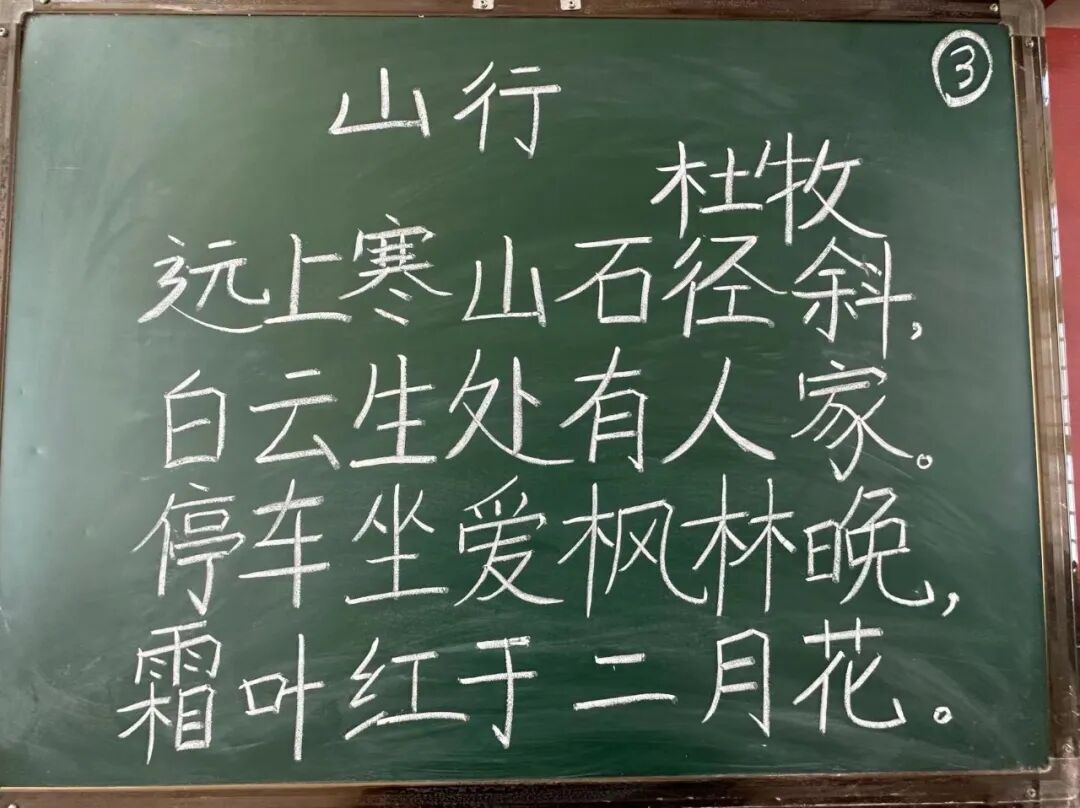 ③
山行
杜牧
远上寒山石径斜,
白云生处有人家。
停车坐爱枫林晚,
霜叶红于二月花。